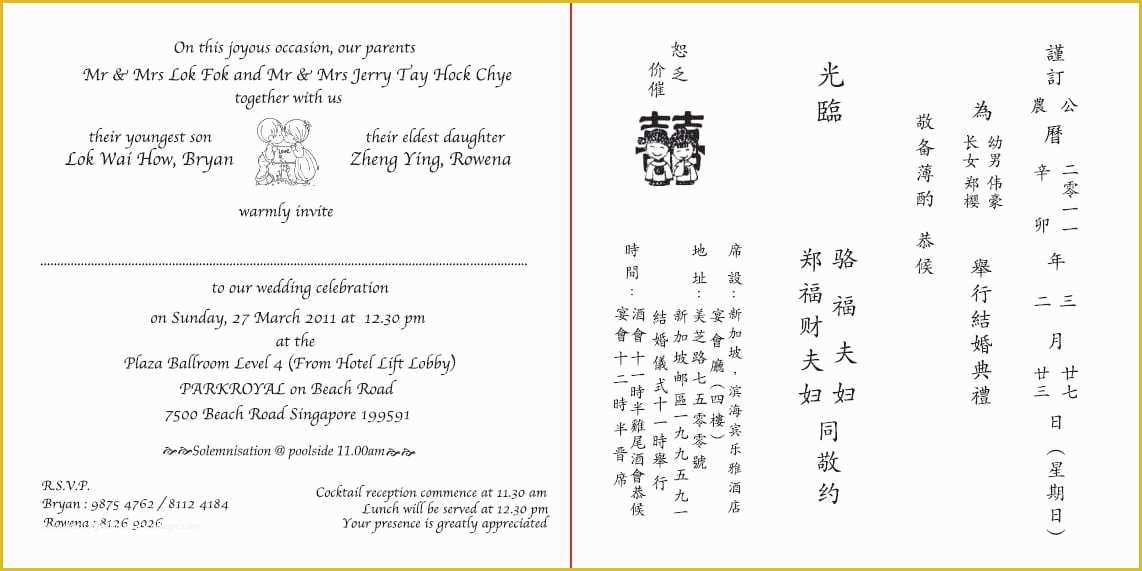 On this joyous occasion, our parents
Mr & Mrs Lok Fok and Mr & Mrs Jerry Tay Hock Chye
together with us
their youngest son
Lok Wai How, Bryan
their eldest daughter
Zheng Ying, Rowena
Love
warmly invite
to our wedding celebration
on Sunday, 27 March 2011 at 12.30 pm
at the
Plaza Ballroom Level 4 (From Hotel Lift Lobby)
PARKROYAL on Beach Road
7500 Beach Road Singapore 199591
Solemnisation @ poolside 11.00am
R.S.V.P.
Bryan : 9875 4762 / 8112 4184
Rowena : 8126 9026
Cocktail reception commence at 11.30 am
Lunch will be served at 12.30 pm
Your presence is greatly appreciated
謹訂
公
農
曆
二零一一
辛卯
年
三
二
月
廿七
廿三
日（星期日）
為
幼男 伟豪
长女 郑樱
舉行結婚典禮
敬备薄酌 恭候
光臨
骆福夫妇
郑福财夫妇
同敬约
恕乏
价催
囍
席設：新加坡，滨海宾乐雅酒店
宴會廳（四樓）
地址：美芝路七五零零號
新加坡邮區一九九五九一
結婚儀式十一時舉行
時間：酒會十一時半雞尾酒會恭候
宴會十二時半晋席